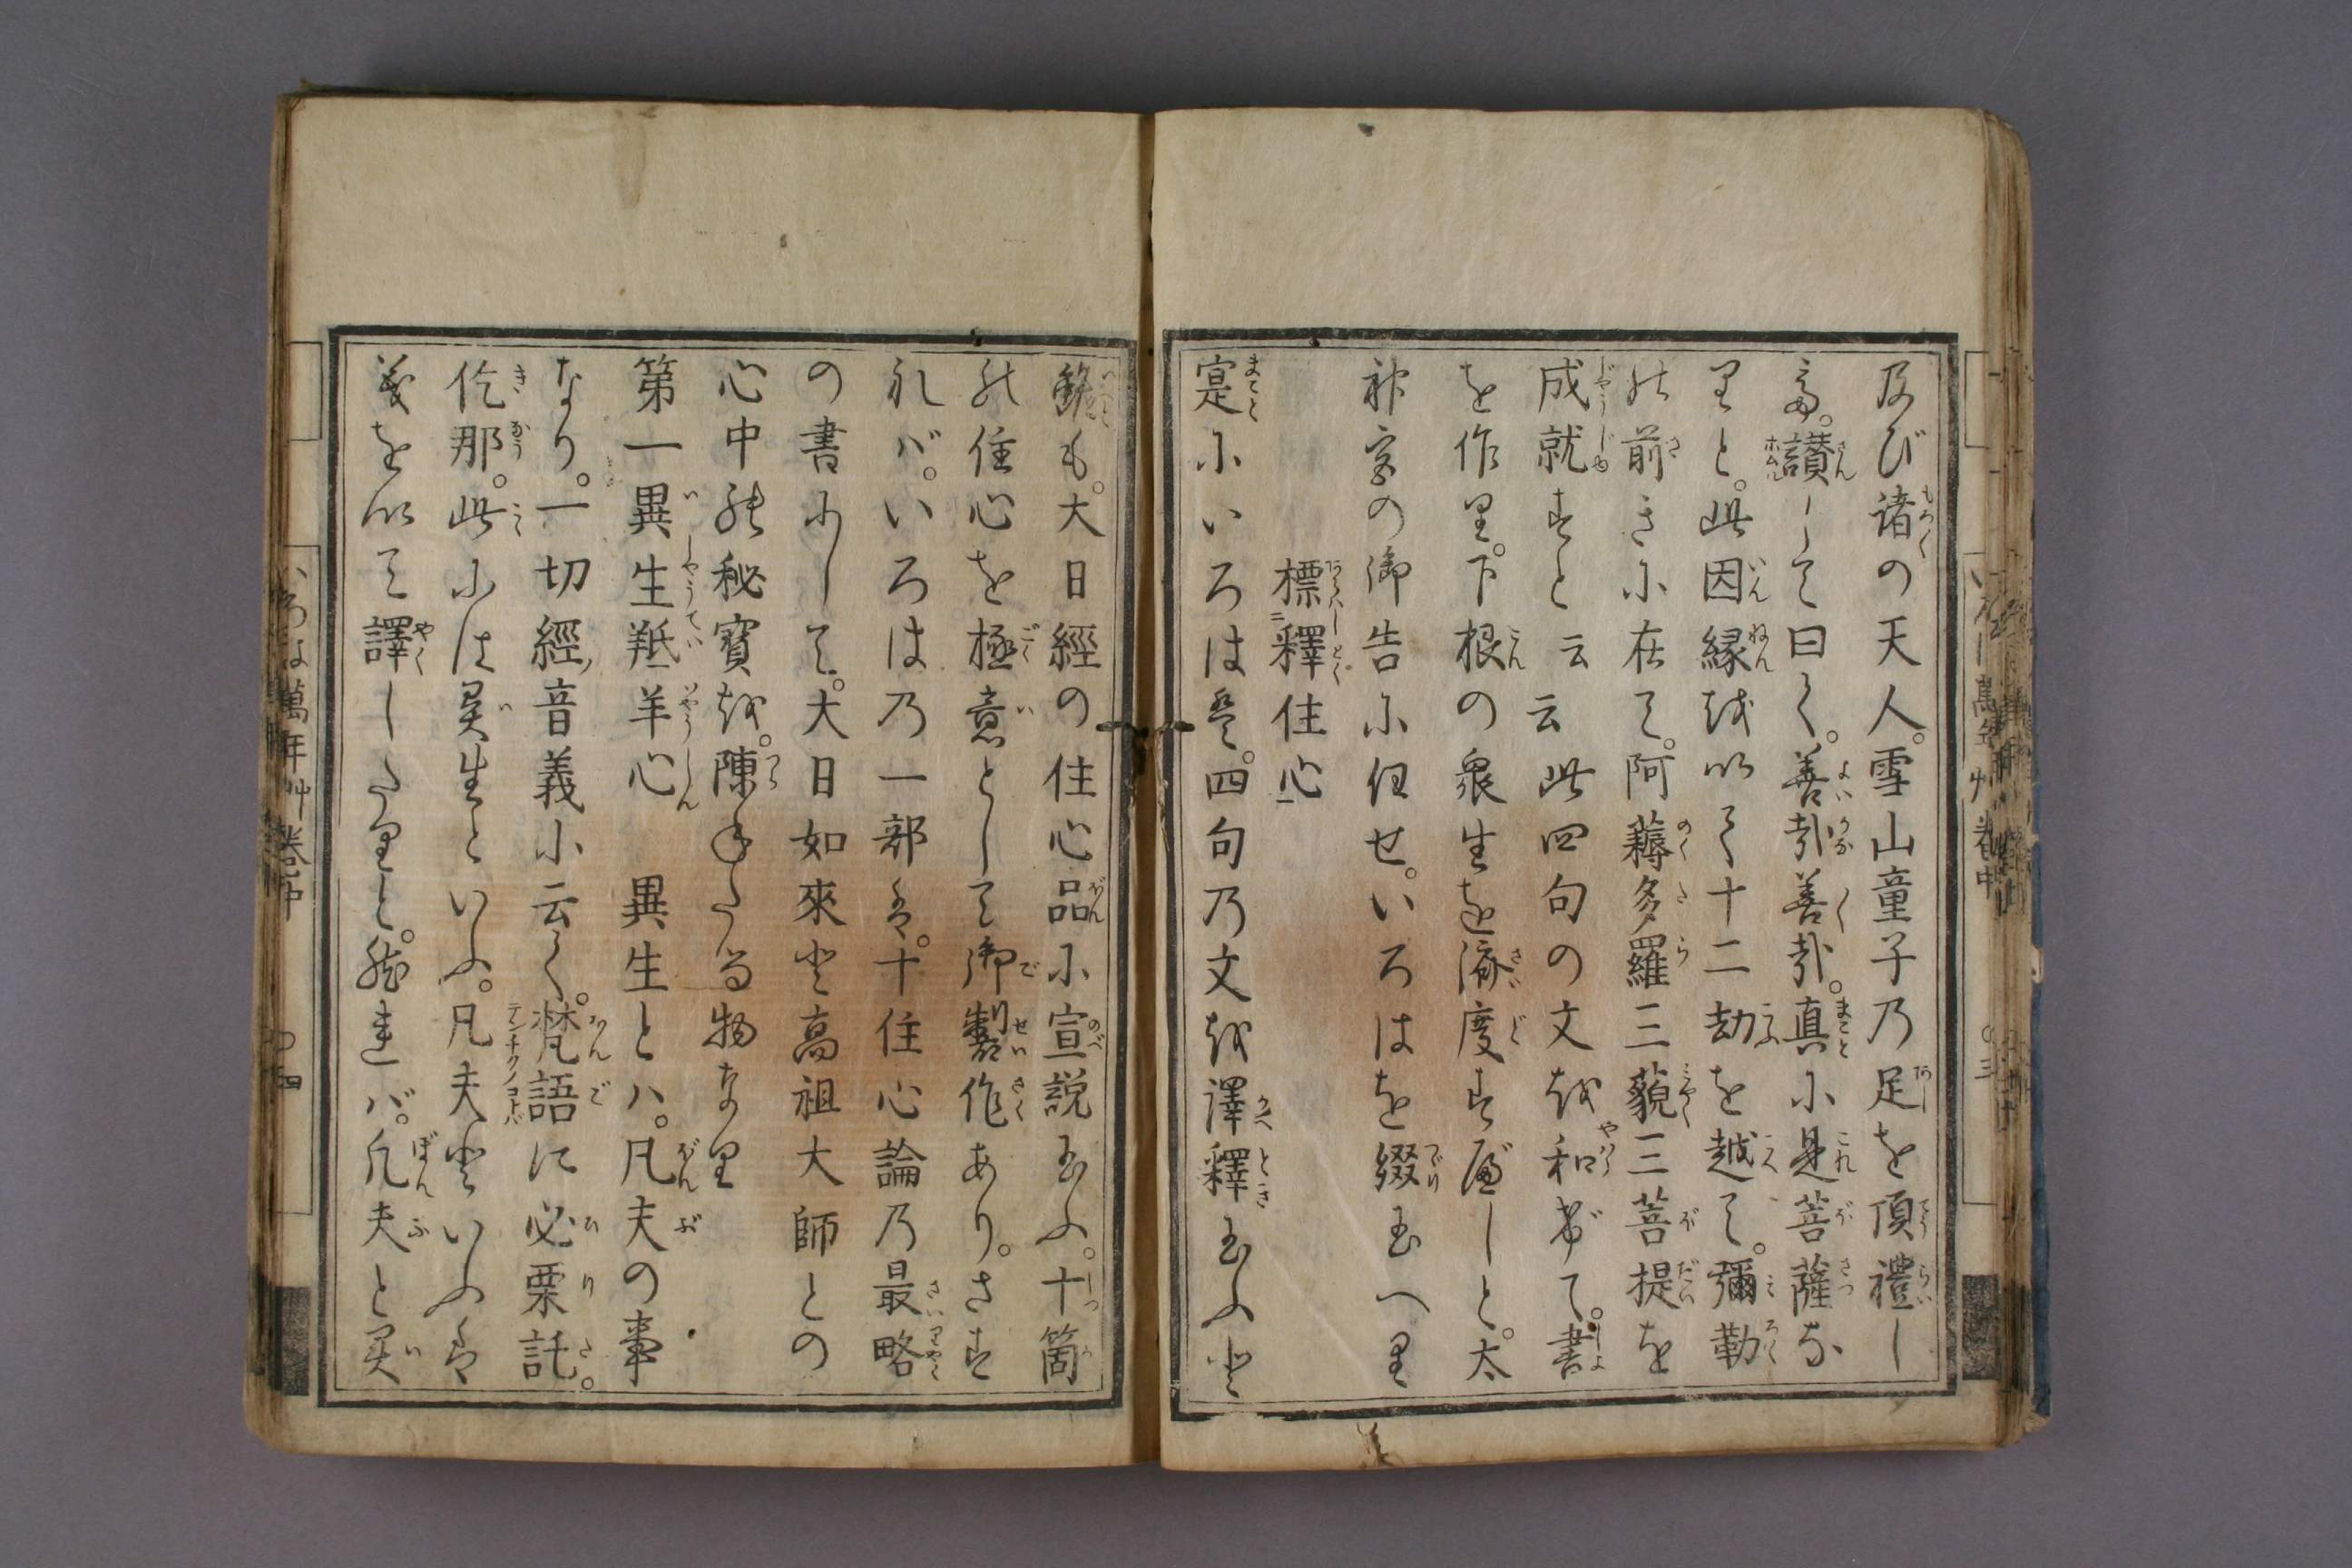 及び諸の天人。雪山童子乃足を頂禮し
讃して曰く。善哉善哉。真に是菩薩な
りと。此因縁を以て十二劫を越て。彌勒
の前きに在て。阿耨多羅三藐三菩提を
成就すと云云此四句の文を和げて。書
を作り。下根の衆生を濟度すべしと。太
神宮の御告に任せ。いろはを綴玉へり
標釋住心
寔にいろは是。四句乃文を譯釋玉ふと
も。大日經の住心品に宣説玉ふ。十箇
の住心を極意として御製作あり。さす
れバ。いろは乃一部は。十住心論乃最略
の書にして。大日如來と高祖大師との
心中の秘寶を。陳たる物なり
第一異生羝羊心 異生とハ。凡夫の事
なり。一切經音義に云く。梵語に必栗託。
仡那。此には異生といふ。凡夫といふは
義を以て譯したりと。然れバ。凡夫と異
いろは萬年艸 卷中 〇三
いろは萬年艸 卷中 〇四